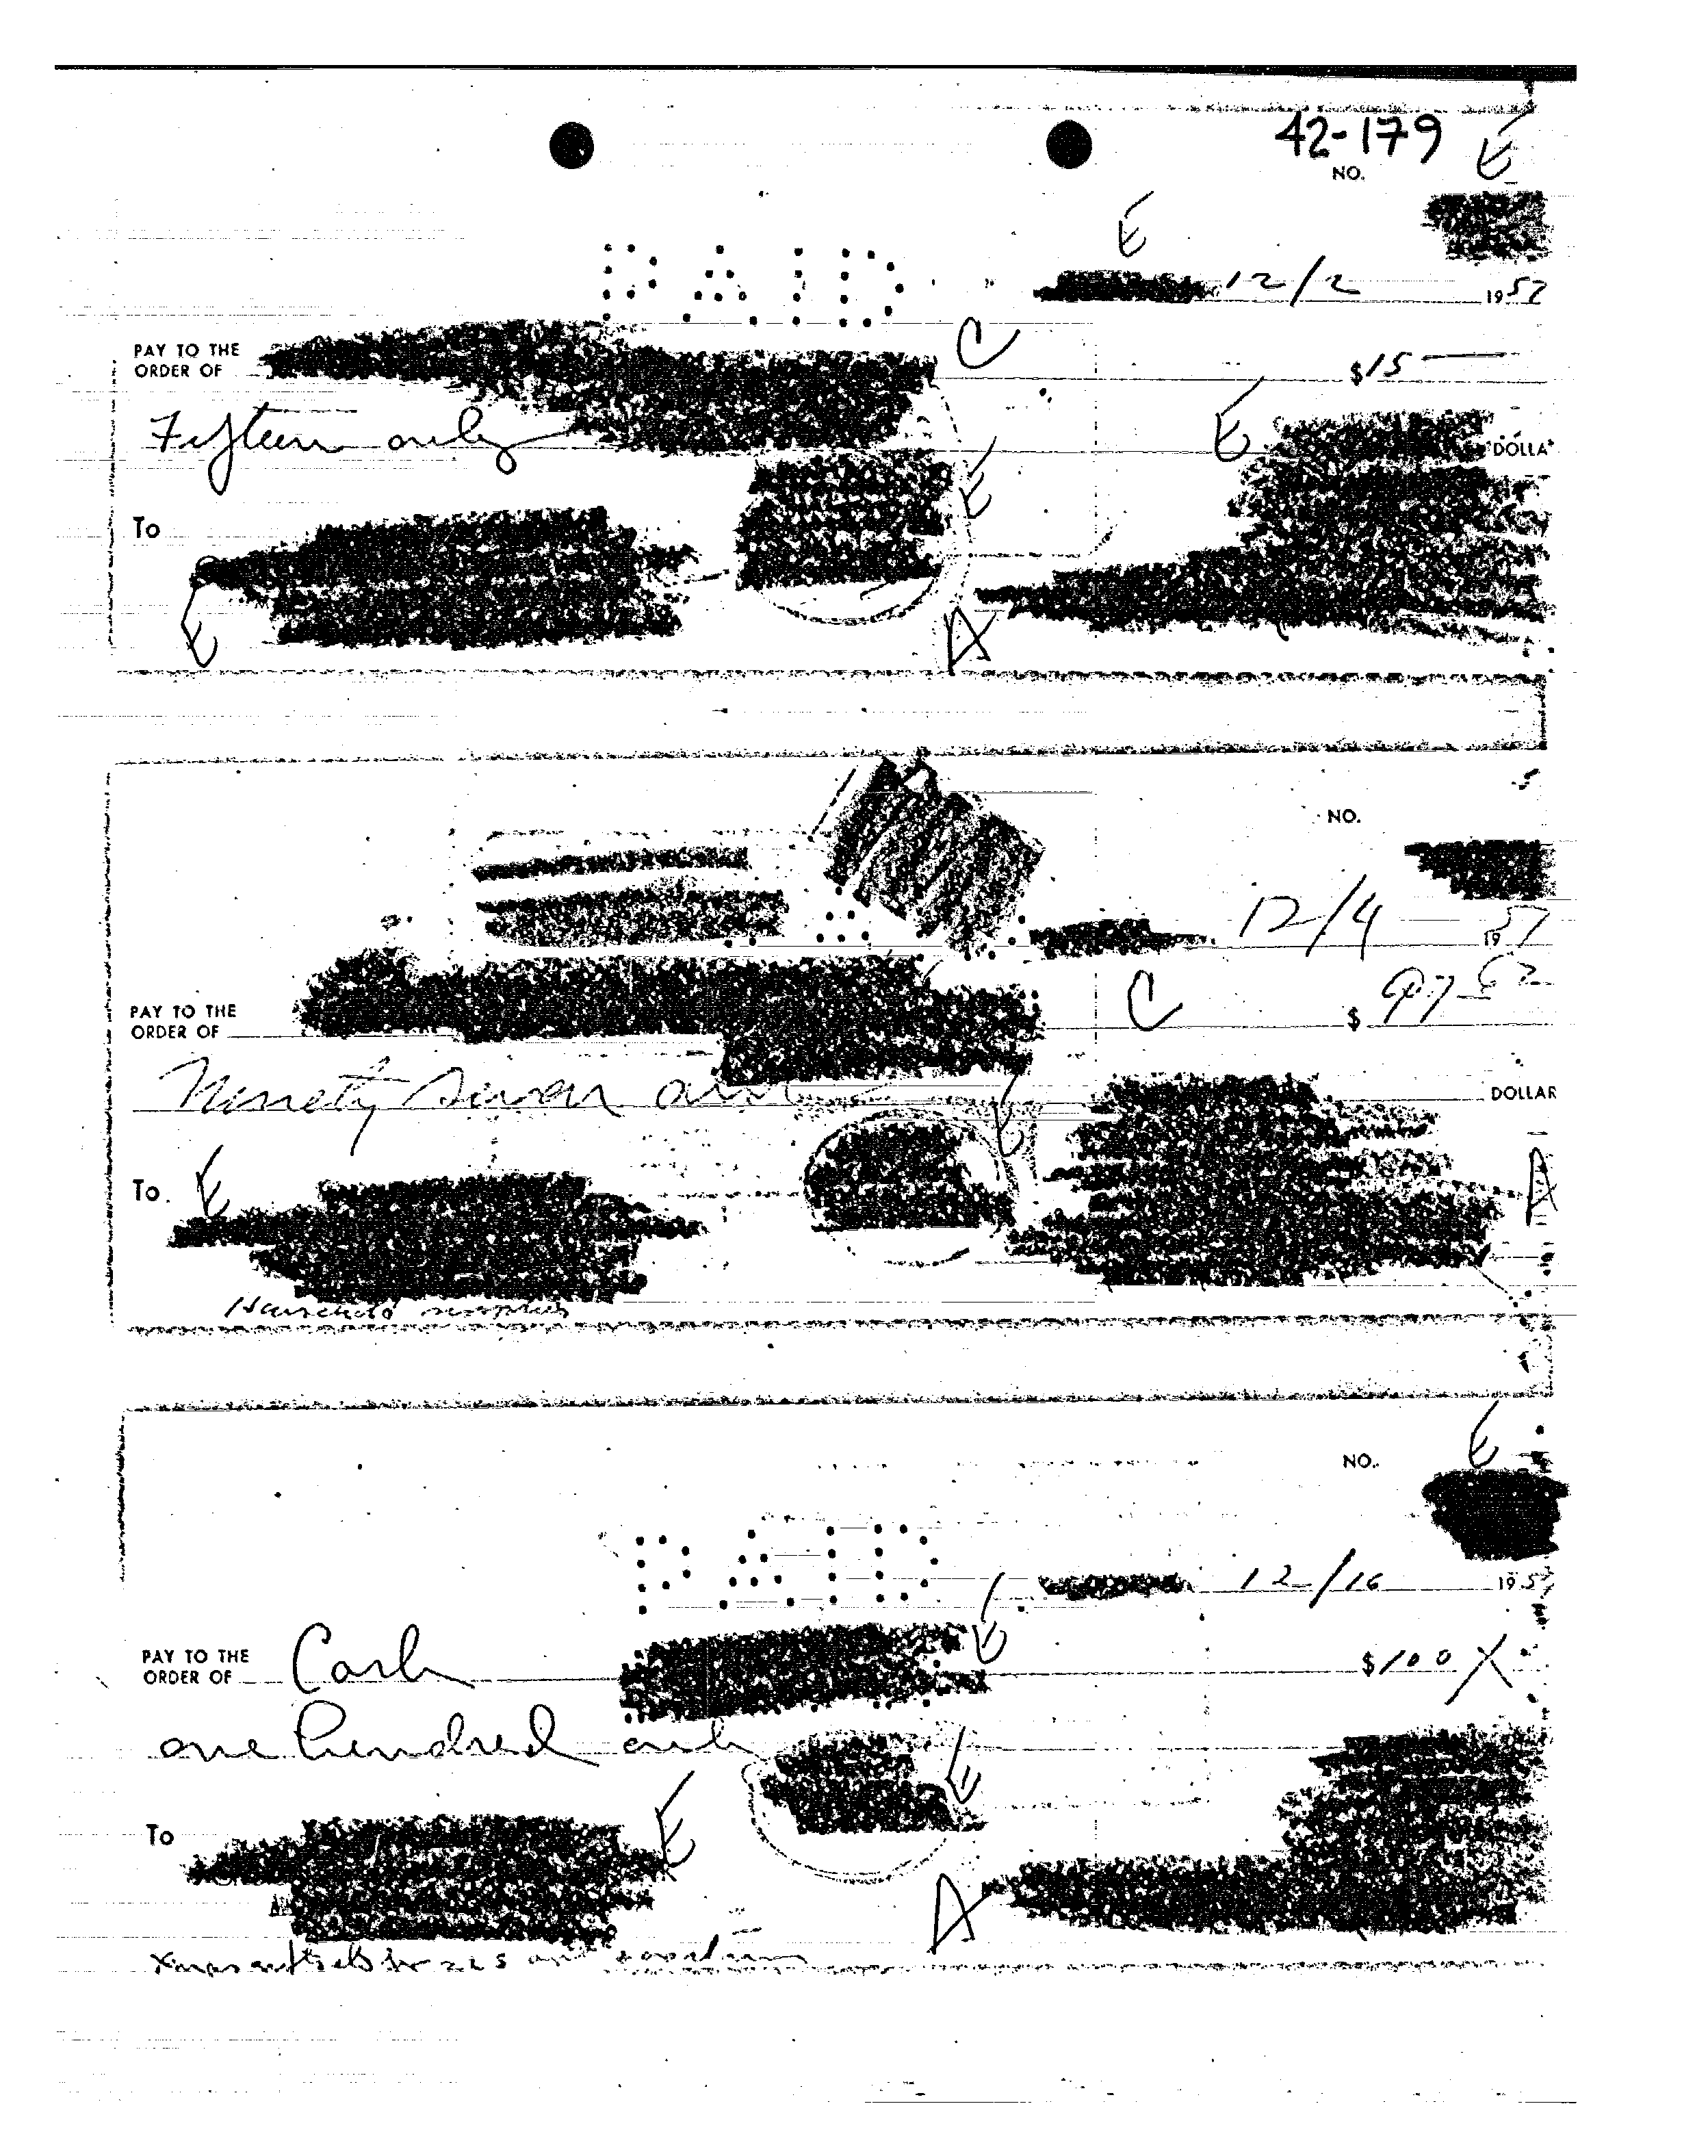 42-179
NO.
E
E
PAID
12/2 1957
PAY TO THE
ORDER OF
C
$15
Fifteen only
E
DOLLA
To
E
E
A
NO.
12/4 1957
PAY TO THE
ORDER OF
C
$ 97
Ninety Seven and
DOLLAR
E
To.
E
A
Household
E
NO.
PAID
12/16 1957
PAY TO THE
ORDER OF Cash
E
$100 X
one hundred only
E
To
E
A
Xmas